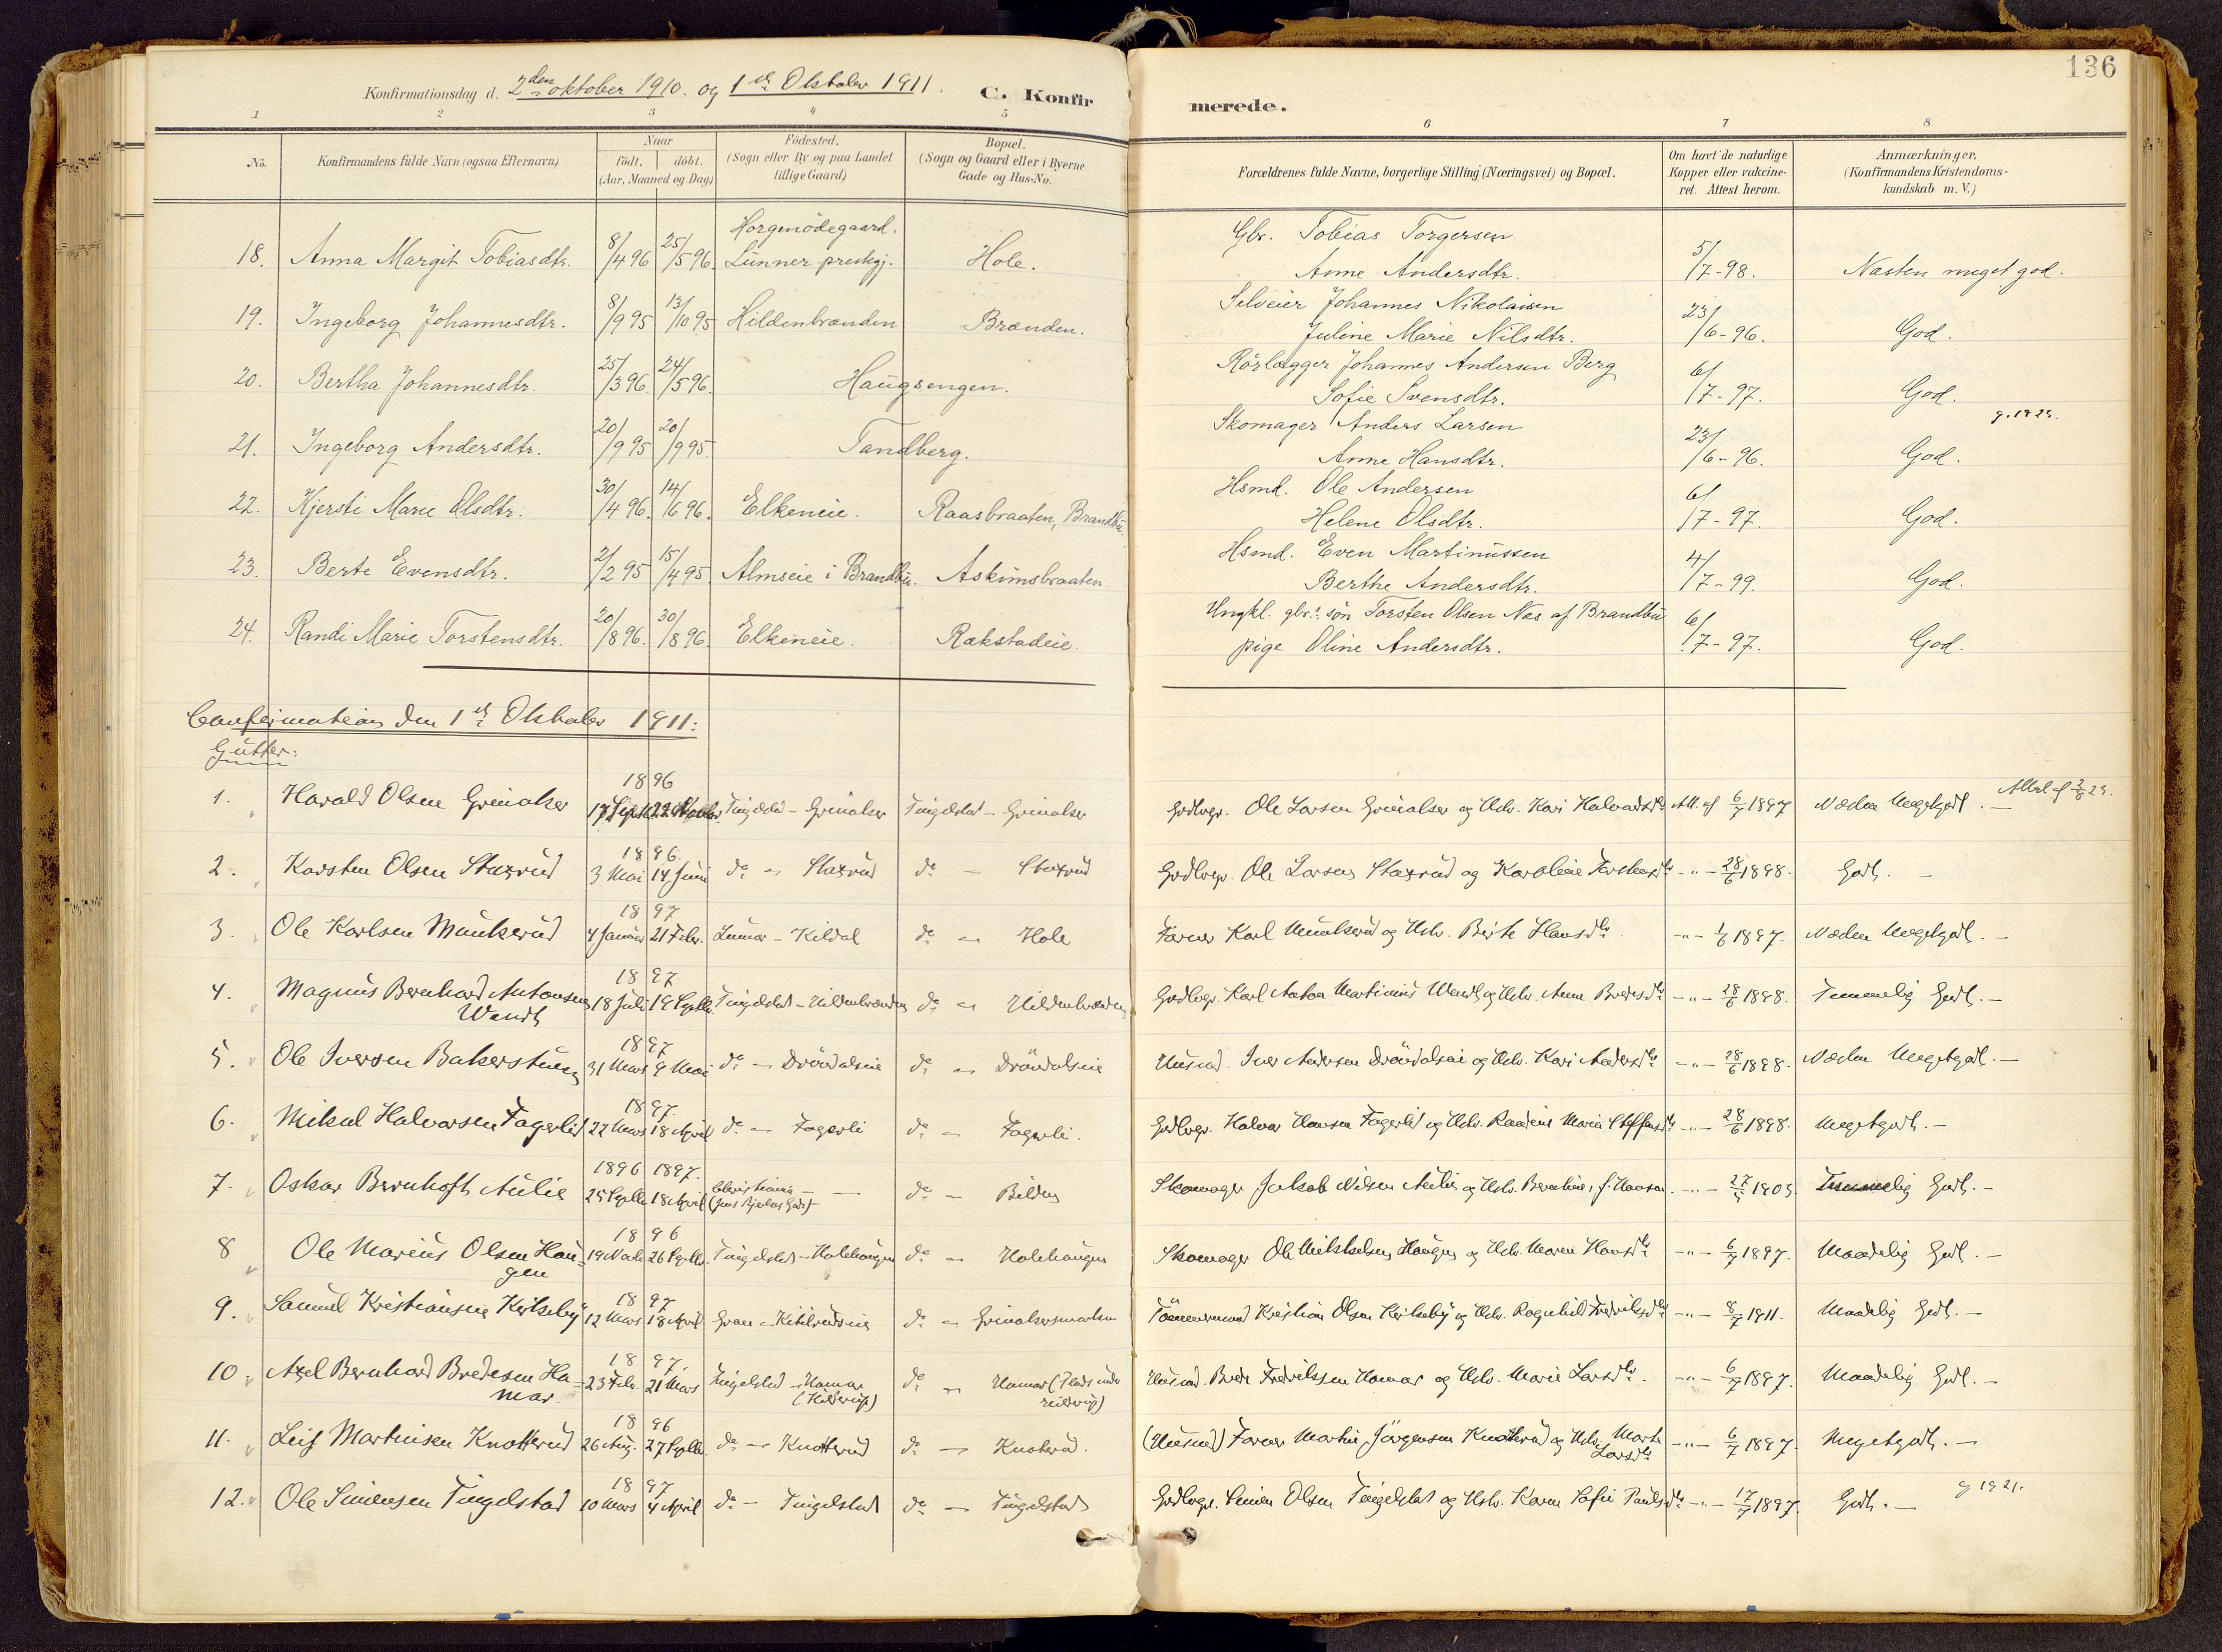 136
Konfirmationsdag d. 2den oktober 1910. og 1ste Oktober 1911.
C. Konfirmerede.
1 2 3 4 5 6 7 8
No.
Konfirmandens fulde Navn (ogsaa Efternavn)
Naar
født. døbt.
(Aar, Maaned og Dag)
Fødested.
(Sogn eller By og paa Landet
tillige Gaard)
Bopæl.
(Sogn og Gaard eller i Byerne
Gade og Hus-No.
Forældrenes fulde Navne, borgerlige Stilling (Næringsvei) og Bopæl.
Om havt de naturlige
Kopper eller vakcine-
ret. Attest herom.
Anmærkninger.
(Konfirmandens Kristendoms-
kundskab m. V.)
Horgenødegaard. Gbr. Tobias Torgersen
18. Anna Margit Tobiasdtr. 8/4 96 25/5 96. Lunner prestegj. Hole. Anne Andersdtr. 5/7-98. Næsten meget god.
Selveier Johannes Nikolaisen
19. Ingeborg Johannesdtr. 8/9 95 13/10 95 Hildenbrænden Brænden. Juline Marie Nilsdtr. 23/6-96. God.
Rørlægger Johannes Andersen Berg
20. Bertha Johannesdtr. 25/3 96. 24/5 96. Haugsengen. Sofie Svensdtr. 6/7-97. God.
Skomager Anders Larsen
21. Ingeborg Andersdtr. 20/9 95 20/9 95. Tandberg. Anne Hansdtr. 23/6-96. God.
Hsmd. Ole Andersen
22. Kjersti Marie Olsdtr. 30/4 96. 14/6 96. Elkeneie. Raasbraaten, Brandbu. Helene Olsdtr. 6/7-97. God.
Hsmd. Even Martinussen
23. Berte Evensdtr. 2/2 95 15/4 95 Almseie i Brandbu. Askimsbraaten. Berthe Andersdtr. 4/7-99. God.
Ungkl. gbr. søn Torsten Olsen Næs af Brandbu
24. Randi Marie Torstensdtr. 20/8 96. 30/8 96. Elkeneie. Rækstadeie. pige Oline Andersdtr. 6/7-97. God.
Confirmation den 1ste Oktober 1911:
Gutter:
1896
1. Harald Olsen Grinaker 17 Septbr. 22 Novbr. Tingelstad - Grinaker Tingelstad - Grinaker Grdbrgr. Ole Larsen Grinaker og Hstr. Kari Halvorsdtr Att. af 6/7 1897 Næsten Megetgodt. -
1896.
2. Karsten Olsen Staxrud 3 Mai 14 Juni do - Staxrud do - Staxrud Grdbrgr. Ole Larsen Staxrud og Karoline -"- 28/6 1898. Godt. -
1897
3. Ole Karlsen Munkerud 4 Januar 21 Febr. Lunner - Kildal do - Hole Farver Karl Munkerud og Hstr. Berte Hansdtr -"- 1897. Næsten Megetgodt. -
1897
4. Magnus Bernhard Antonsen
Wendt 18 Juli 19 Septbr. Tingelstad - Hildenbrænden do - Hildenbrænden Grdbrgr. Karl Anton Martinius Wendt og Hstr. Anne Bredesdtr -"- 28/6 1898. Temmelig Godt. -
1897
5. Ole Iversen Bakerstuen 31 Mars 9 Mai do - Drøvdalseie do - Drøvdalseie Husmd. Iver Andersen Drøvdalseie og Hstr. Kari Andersdtr -"- 28/6 1898. Næsten Megetgodt. -
1897.
6. Mikal Halvorsen Fagerlid 22 Mars 18 April do - Fagerli do - Fagerli. Grdbrgr. Halvor Hansen Fagerlid og Hstr. Marie Steffensdtr -"- 28/6 1898. Megetgodt. -
1896 1897.
7. Oskar Bernhoft Aulie 25 Septbr. 18 April Christiania do - Bilden Skomager Jakob Nilsen Aulie og Hstr. Bernhine, f. Hansen. -"- 1903. Temmelig Godt. -
1896
8 Ole Marius Olsen Hau-
gen 26 Septbr. Tingelstad - Holehaugen do - Holehaugen Skomager Ole Mikkelsen Haugen og Hstr. Maren Hansdtr -"- 6/7 1897. Maadelig Godt. -
1897
9. Samuel Kristiansen Kirkeby 12 Mars 18 April Gran - do - Grinakersmarken Tømmermand Kristian Olsen Kirkeby og Hstr. Ragnhild Fredriksdtr -"- 8/7 1911. Maadelig Godt. -
1897.
10. Axel Bernhard Bredesen Ha-
mar. 23 Febr. 21 Mars Tingelstad - Hamar do - Hamar Husmd. Brede Fredriksen Hamar og Hstr. Marie Larsdtr. -"- 6/7 1897. Maadelig Godt. -
1896
11. Leif Martinsen Knotterud 26 Aug. 27 Septbr. do - Knotterud do - Knoterud. (Husmd) Farver Martin Jörgensen Knotterud og Hstr. Marte
Larsdtr -"- 6/7 1897. Megetgodt. -
1897
12. Ole Simensen Tingelstad 10 Mars 4 April do - Tingelstad do - Tingelstad Grdbrgr. Simen Olsen Tingelstad og Hstr. Karen Sofie Paulsdtr -"- 17/7 1897. Godt. - g 1921.